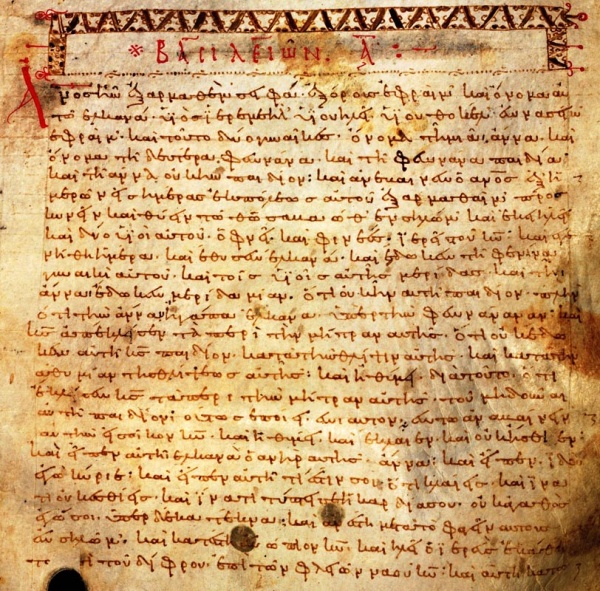 ΒΑΣΙΛΕΙΩΝ. Α :
Ἄνος ἦν ἐξ ἀρμαθὲμ σιφὰ· ἐξ ὄρους ἐφραὶμ· καὶ ὄνομα αὐ
τῶ ἑλκανὰ· υἱὸς ἰερεμεὴλ· υἱοῦ ἠλιοὺ· υἱοῦ θοκὲ· ἐν νασεὶβ
ἐφραὶμ· καὶ τούτω δύο γυναῖκες· ὄνομα τῆ μιᾶ, ἄννα· καὶ
ὄνομα τῆ δευτέρα, φεννάνα. καὶ τῆ φεννάνα παιδία·
καὶ τῆ ἄννα οὐκ ἦν παιδίον· καὶ ἀνέβαινεν ὁ ἄνος ἐξ ἡ
μερῶν εἰς ἡμέρας ἐκ πόλεως αὐτοῦ ἐξ ἀρμαθαὶμ· προς
κυνεῖν· καὶ θύειν τῶ θῶ σαβαὼθ ἐν σηλὼμ· καὶ ἐκεῖ ἡλεὶ
καὶ δύο υἱοὶ αὐτοῦ· ὀφνεὶ· καὶ φινεὲς· ἱερεῖς τοῦ κυ· καὶ ἐγε
νήθη ἡμέρα. καὶ ἔθυσεν ἑλκανὰ· καὶ ἔδωκεν τῆ φεννάνα
γυναικὶ αὐτοῦ· καὶ τοῖς υἱοῖς αὐτῆς μερίδας· καὶ τῆ
ἄννα ἔδωκεν μερίδα μίαν. ὅτι οὐκ ἦν αὐτῆ παιδίον. πλὴν
ὅτι τὴν ἄνναν ἠγάπα ἑλκανὰ ὑπὲρ τὴν φεννάναν· καὶ
κς ἀπέκλεισεν τὰ περὶ τὴν μήτραν αὐτῆς· ὅτι οὐκ ἔδω
κεν αὐτῆ κς παιδίον. κατὰ τὴν θλίψιν αὐτῆς· καὶ κατὰ τὴν
ἀθυμίαν τῆς θλίψεως αὐτῆς· καὶ ἠθύμει διὰ τοῦτο· ὅτι
ἔκλεισεν κς τὰ περὶ τὴν μήτραν αὐτῆς· τοῦ μὴ δοῦναι
αὐτῆ παιδίον· οὕτως ἐποίει ἐνιαυτὸν ἐν τῶ ἀναβαίνειν
αὐτὴν εἰς οἶκον κυ· καὶ ἠθύμει· καὶ ἔκλαιεν· καὶ οὐκ ἤσθιεν·
καὶ εἶπεν αὐτῆ ἑλκανὰ ὁ ἀνὴρ αὐτῆς· ἄννα· καὶ εἶπεν· ἰδοὺ
ἐγὼ κύριε· καὶ εἶπεν αὐτῆ τί ἐστίν σοι ὅτι κλαίεις· καὶ ἵνα
τί οὐκ ἐσθίεις· καὶ ἵνα τί τύπτει σε ἡ καρδία σου. οὐκ ἀγαθὸς
ἐγώ σοι. ὑπὲρ δέκα τέκνα· καὶ ἀνέστη μετὰ τὸ φαγεῖν αὐτοὺς
ἐν σηλὼμ· καὶ κατέστη ἐνώπιον κυ· καὶ ἡλεὶ ὁ ἱερεὺς ἐκάθη
το ἐπὶ τοῦ δίφρου. ἐπὶ τῶν φλιῶν ναοῦ κυ· καὶ αὐτὴ